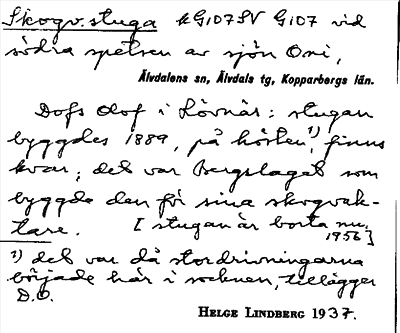 Skogv.stuga k G107SV G107 vid
södra spetsen av sjön Oni,
Älvdalens sn, Älvdals tg, Kopparbergs län.
Dofs Olof i Lövnäs: stugan
byggdes 1889, på hösten,¹) finns
kvar; det var Bergslaget som
byggde den för sina skogvak-
tare. [stugan är borta nu,
1956]
¹) det var då stordrivningarna
började här i socknen, tillägger
D.O.
HELGE LINDBERG 1937.